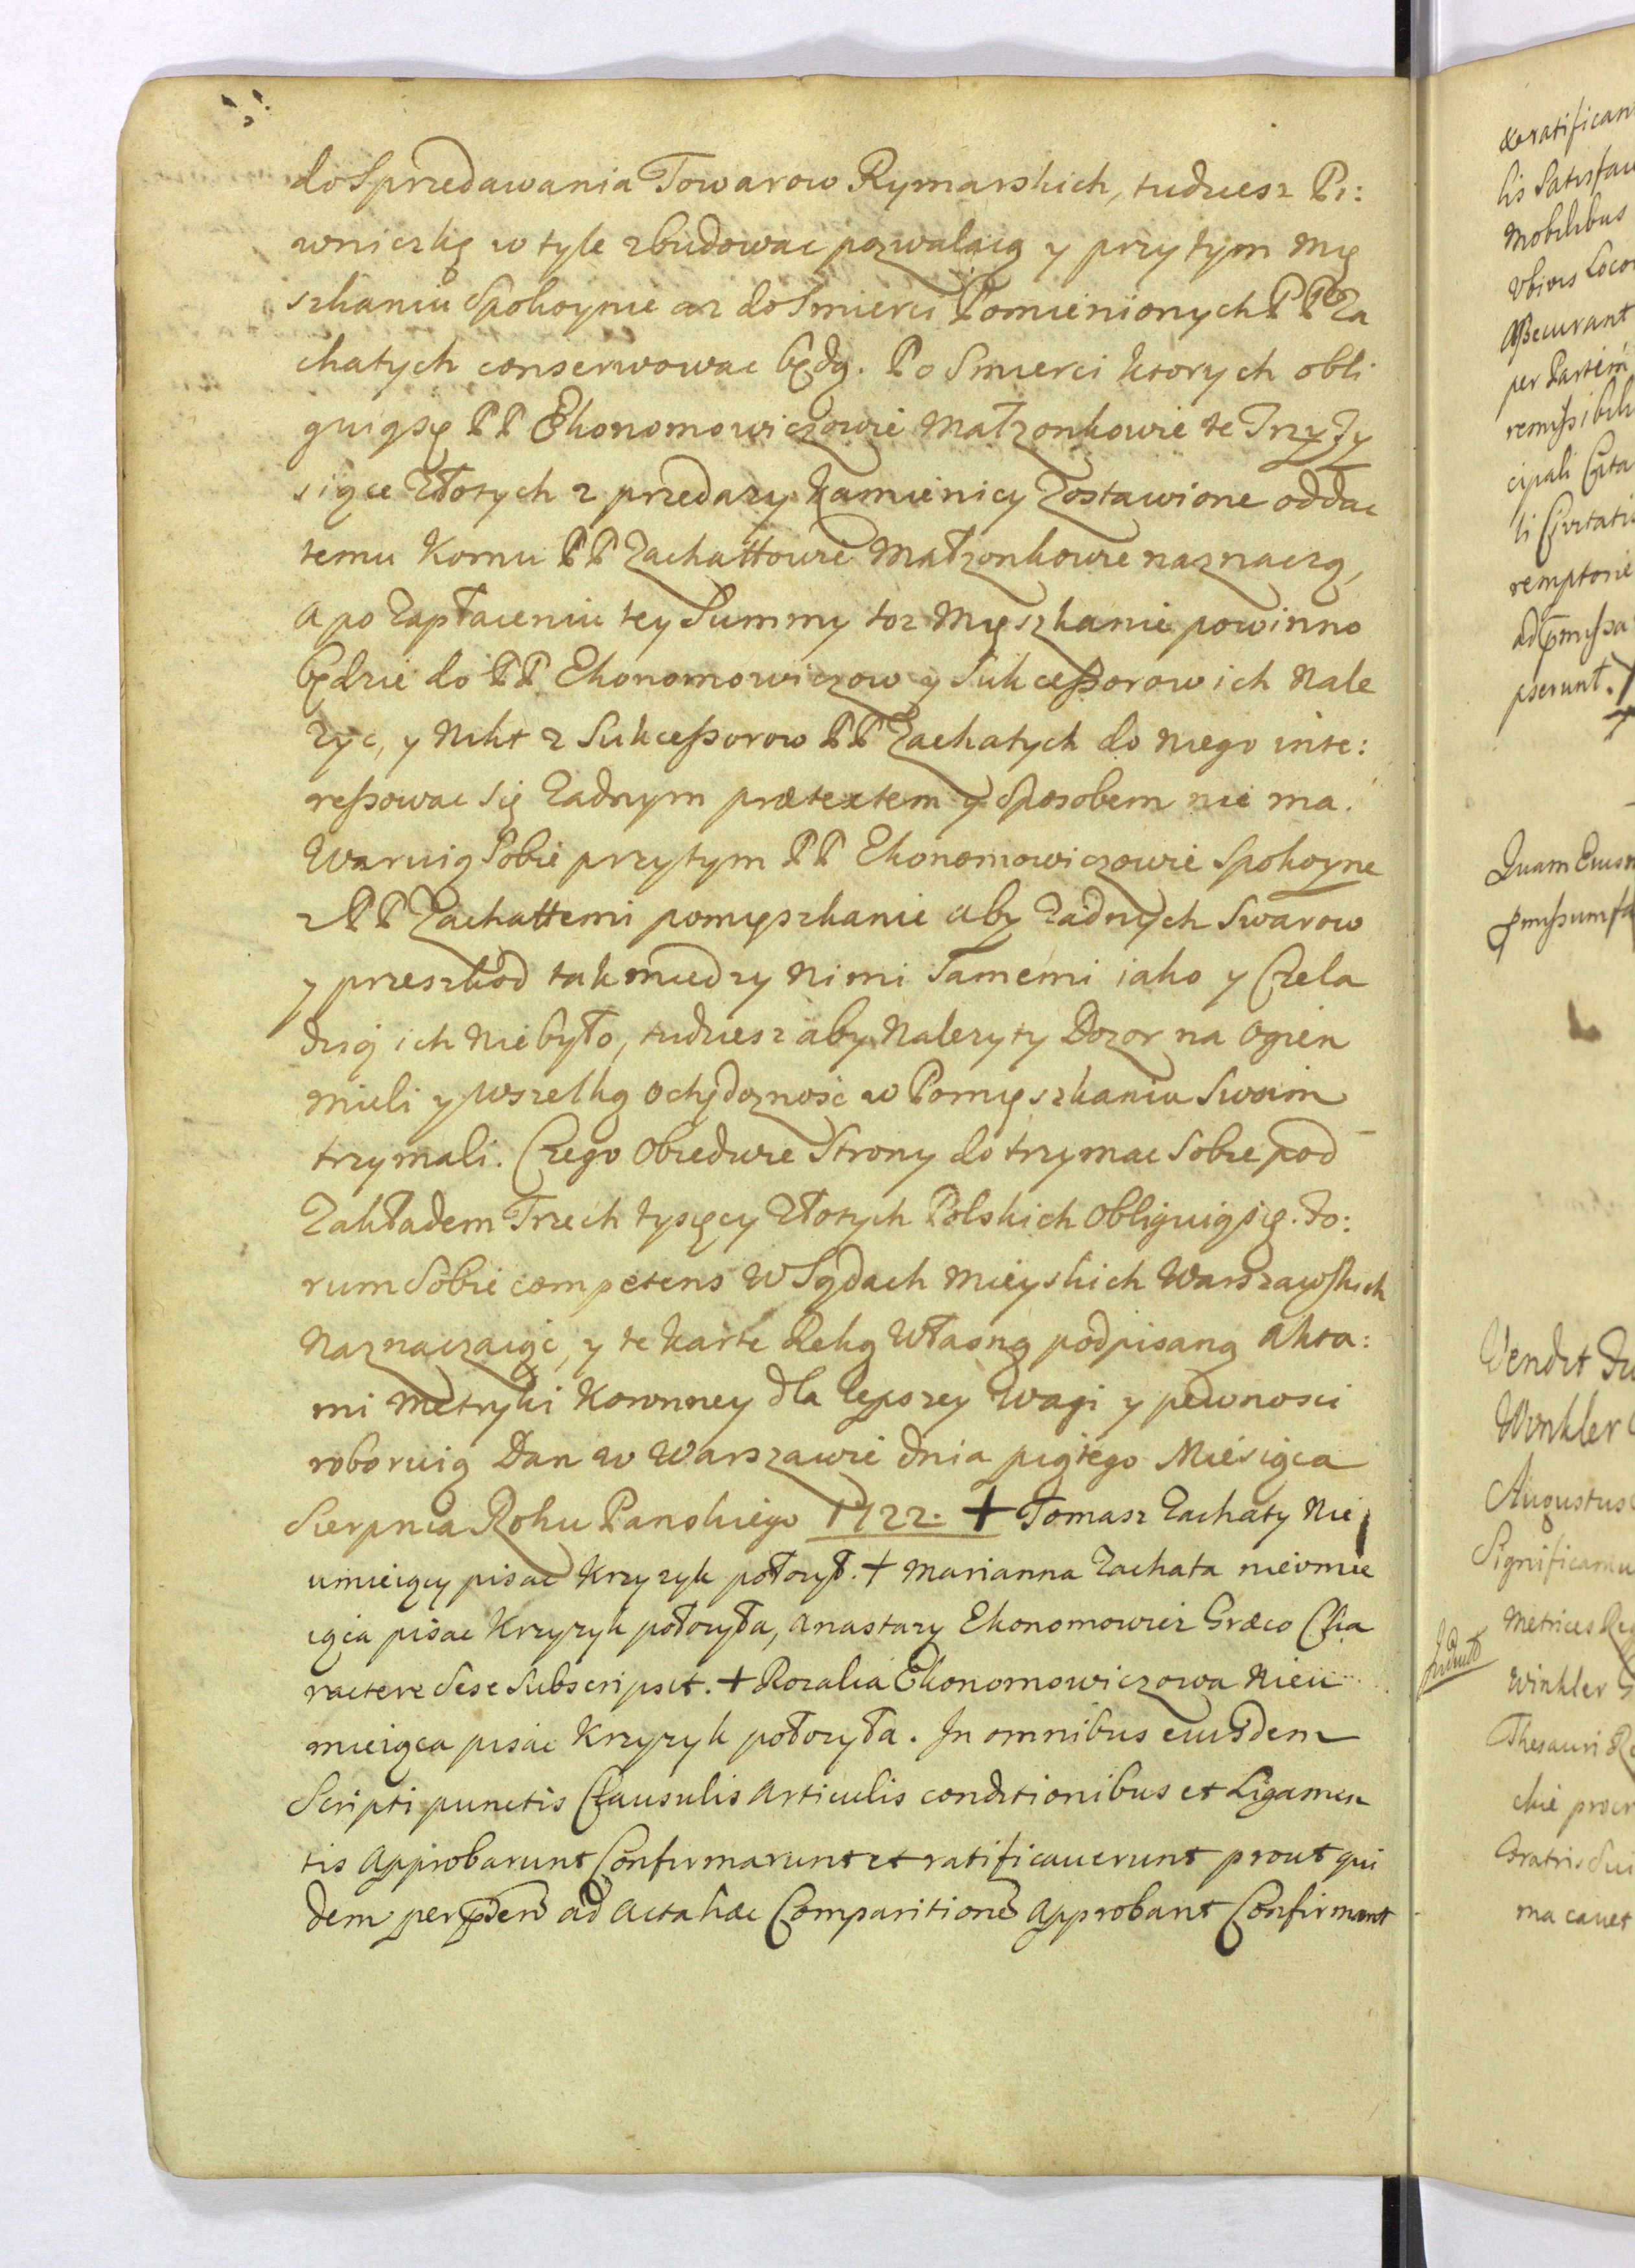 do Sprzedawania Towarow Rymarskich, tudziesz Pi:
wniczkę w tyle zbudowac pozwalaią y przytym Mię
szkaniu Spokoynie az do Smierci Pomienionych PP Za
chatych conserwowac będą. Po Smierci ktorych obli
guią się PP Ekonomowiczowie Małzonkowie te Trzy Ty
siące Złotych z przedazy Kamienicy Zostawione oddac
temu Komu PP Zachattowie Małzonkowie naznaczą,
A po Zapłaceniu tey Summy toz Mięszkanie powinno
będzie do PP Ekonomowiczow y Sukcessorow ich Nale
zyc, y Nikt z Sukcessorow PP Zachatych do niego inte:
ressowac się Zadnym prætextem y Sposobem nie ma.
Waruią Sobie przytym PP Ekonomowiczowie Spokoyne
z PP Zachattemi pomięszkanie aby Zadnych Swarow
y przeszkod tak miedzy Nimi Samemi iako y Czela
dzią ich Nie było, tudziesz aby Nalezyty Dozor na Ogien
Mieli y Wszelką Ochędoznośc w Pomięszkaniu Swoim
trzymali. Czego Obiedwie Strony dotrzymac Sobie pod
Zakładem Trzech tysięcy Złotych Polskich Obliguią się. Fo:
rum Sobie competens W Sądach Mieyskich Warszawskich
Naznaczaiąc, y te karte Ręką Własną podpisaną Akta:
mi Metryki Koronney dla lepszey Wagi y pewnosci
roboruią Dan w Warszawie dnia piątego Miesiąca
Sierpnia Roku Panskiego 1722. + Tomasz Zachaty Nie
umieiący pisac Krzyzyk połozył. + Marianna Zachata nieumie
iąca pisac Krzyzyk połozyła, Anastazy Ekonomowicz Græco Cha
ractere Sese Subscripsit. + Rozalia Ekonomowiczowa Nieu
mieiąca pisac Krzyzyk połozyła. In omnibus eiusdem
Scripti punctis Clausulis Articulis conditionibus et Ligamen
tis Approbarunt Confirmarunt et ratificauerunt prout qui
dem per ad Acta hæc Approbant Confirmant
&ratifican
lis Satisfa
Mobilibus
Vbivis Loco
Assecurant
per Partem
remissibil
cipali
li Civitati
remptorie
pserunt.
Quam
Vendit
Winkler
Augustus
Significamu
Metrices Re
Winkler
Thesauri R
Fratris Sui
ma cauet